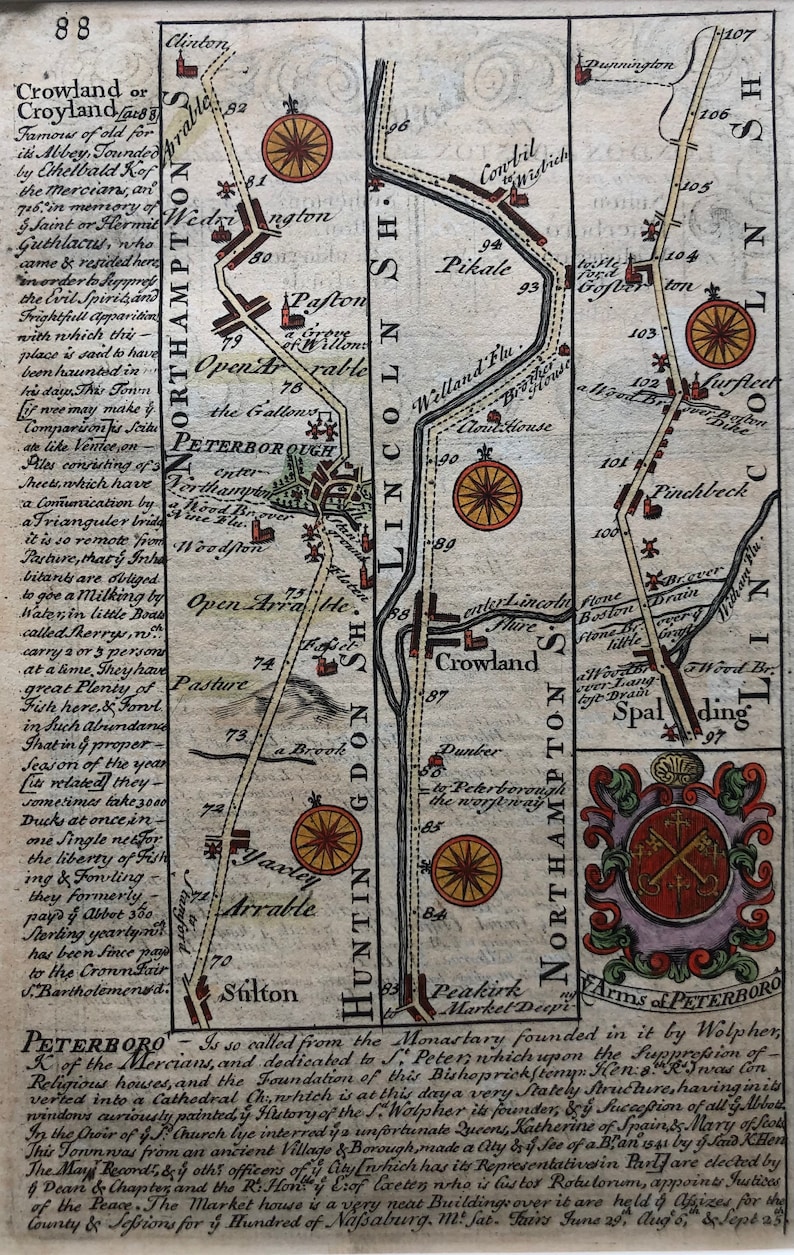 88
Crowland or
Croyland [at 88]
Famous of old for
its Abbey, Founded
by Ethelbald K. of
the Mercians, an.º
716. in memory of
ÿ Saint or Hermit
Guthlacus, who
came & resided here,
in order to Suppress
the Evil Spirits, and
Frightfull Apparition
with which this —
place is said to have
been haunted in
his days. This Town
[if wee may make ÿ
Comparison] is Scitu
ate like Venice, on —
Piles consisting of 3
Sheets, which have
a Comunication by
a Trianguler bridg
it is so remote from
Pasture, that ÿ Inha
bitants are obliged
to goe a Milking by
Water, in little Boats
called Skerrys, wch.
carry 2 or 3 persons
at a time. They have
great Plenty of
Fish here, & Fowl.
in Such abundance
That in ÿ proper —
Season of the year
[its related] they —
sometimes take 3000
Ducks at once, in —
one Single net. For
the liberty of Fish
ing & Fowling —
they formerly —
pay'd ÿ Abbot 300
Sterling yearly, wch
has been Since payd
to the Crown Fair
St. Bartholemews d.
Clinton
82
Arrable
81
Wedrington
80
79
Paston
a Grove
of Willows
Open Arrable
78
the Gallows
PETERBOROUGH
enter
Northampton
a Wood Br. over
Nine Flu.
Woodston
Stan
ground
Fleton
75
Open Arrable
Fasset
74
Pasture
73
a Brook
72
Yaxley
71
Arrable
to Stanford
70
Stilton
NORTHAMPTON S
HUNTINGDON SH.
96
Cowbil
to Wisbich
94
Pikale
93
Welland Flu.
Brother
House
Cloud House
90
89
88
enter Lincoln
shire
Crowland
87
Dunber
86
to Peterborough
the worst way
85
84
83
to
Peakirk
Market Deeping
LINCOLN SH.
NORTHAMPTON S
107
Dunnington
106
105
104
Gosberton
103
102
Surfleet
a Wood Br. over Boston
Dike
101
Pinchbeck
100
Stone Br. over
Boston Drain
Stone Br. over ÿ
little Graft
Witham Flu.
a Wood Br.
over Lang
toft Drain
a Wood Br.
Spalding
97
LINCOLN SH
ÿ Arms of PETERBORO'
PETERBORO' — Is so called from the Monastary founded in it by Wolpher,
K of the Mercians, and dedicated to St. Peter; which upon the Suppression of —
Religious houses, and the Foundation of this Bishoprick [temp. Hen: 8th. Rs.] was Con
verted into a Cathedral Ch; which is at this day a very Stately Structure, having in its
windows curiously painted, ÿ History of the Sd. Wolpher its founder, & ÿ Succession of all ÿ Abbots
In the Choir of ÿ Sd. Church lye interred ÿ 2 unfortunate Queens, Katherine of Spain, & Mary of Scots
This Town was from an ancient Village & Borough, made a City & ÿ See of a Bp. ano 1541 by ÿ Said K. Hen
The Mayr. Recordr, & ÿ othr. officers of ÿ City [which has its Representatives in Parlt.] are elected by
ÿ Dean & Chapter, and the Rt. Honble. ÿ E: of Exeter, who is Custos Rotulorum, appoints Justices
of the Peace. The Market house is a very neat Building: over it are held ÿ Assizes for the
County & Sessions for ÿ Hundred of Nassaburg. Mt. Sat. Fairs June 29th. Augt. 6th. & Sept 25th.